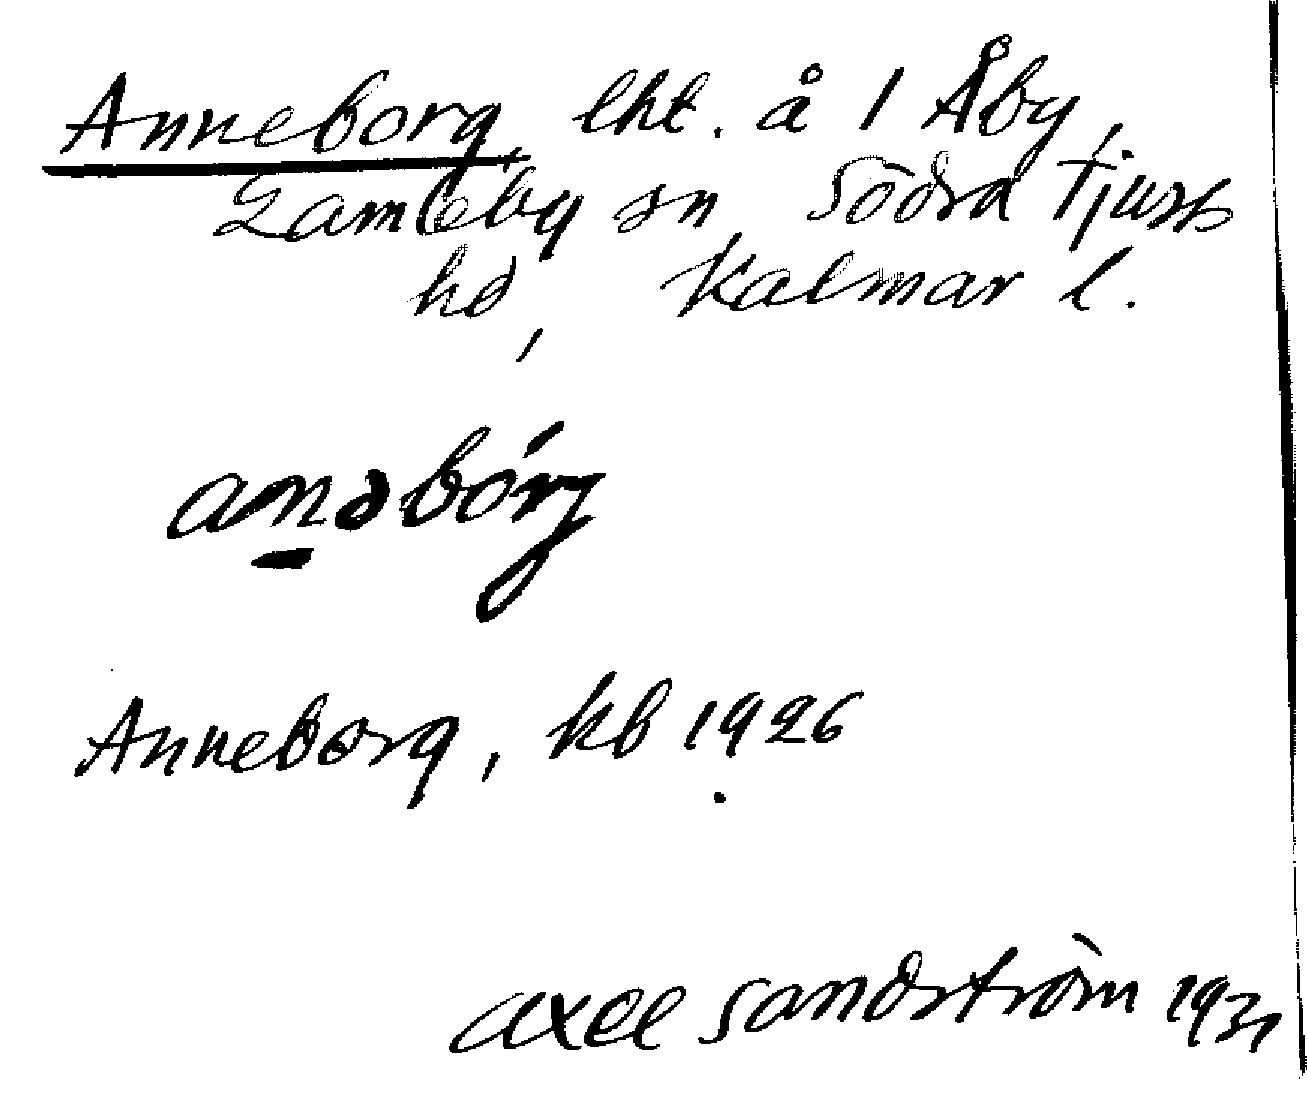 Anneborg, lht. å 1 Åby,
Gamleby sn, Södra Tjusts
hd, Kalmar l.
anəbórj
Anneborg, kb 1926
Axel Sandström 1931